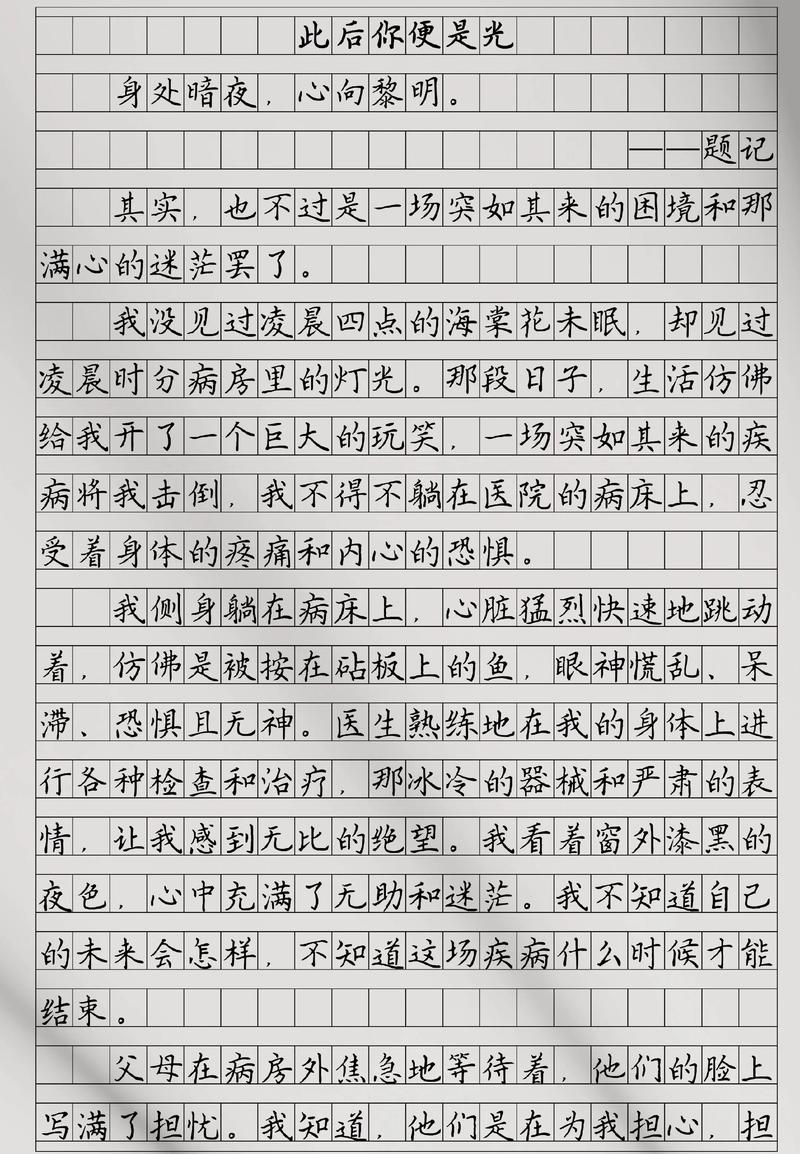 此后你便是光
身处暗夜，心向黎明。
——题记
其实，也不过是一场突如其来的困境和那
满心的迷茫罢了。
我没见过凌晨四点的海棠花未眠，却见过
凌晨时分病房里的灯光。那段日子，生活仿佛
给我开了一个巨大的玩笑，一场突如其来的疾
病将我击倒，我不得不躺在医院的病床上，忍
受着身体的疼痛和内心的恐惧。
我侧身躺在病床上，心脏猛烈快速地跳动
着，仿佛是被按在砧板上的鱼，眼神慌乱、呆
滞、恐惧且无神。医生熟练地在我的身体上进
行各种检查和治疗，那冰冷的器械和严肃的表
情，让我感到无比的绝望。我看着窗外漆黑的
夜色，心中充满了无助和迷茫。我不知道自己
的未来会怎样，不知道这场疾病什么时候才能
结束。
父母在病房外焦急地等待着，他们的脸上
写满了担忧。我知道，他们是在为我担心，担